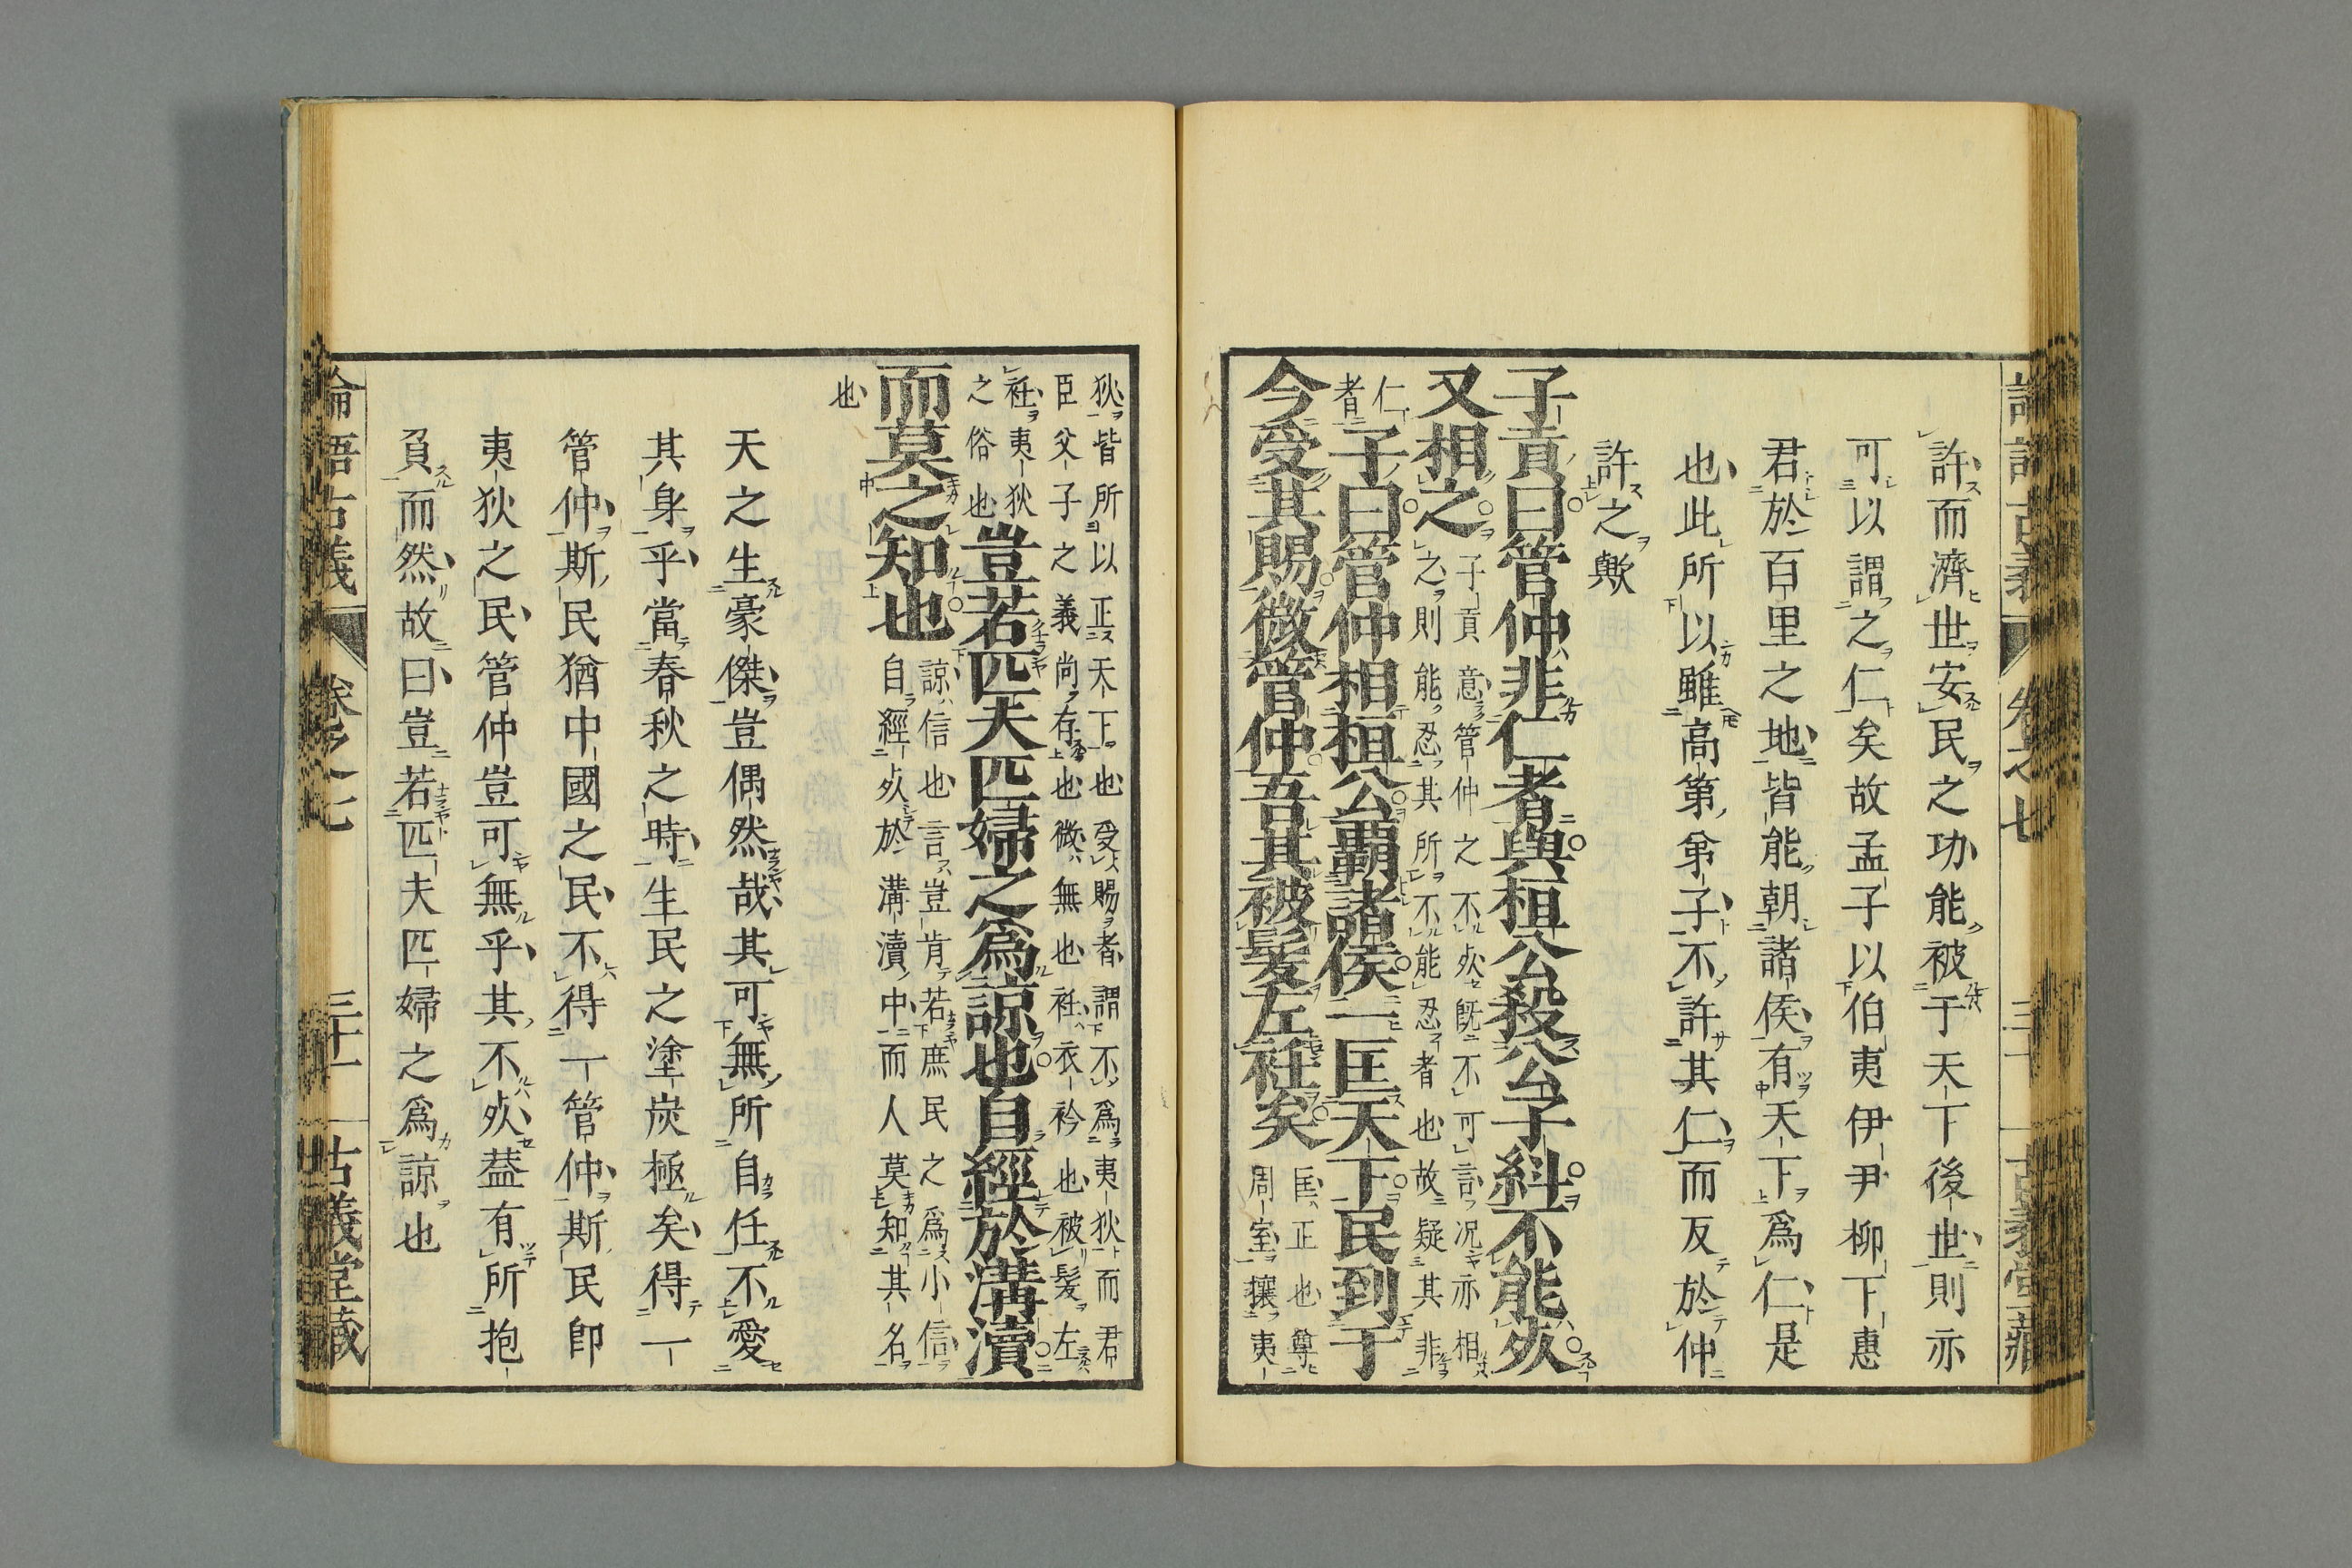 論語古義 卷之七 三十 古義堂藏
許而濟世安民之功能被于天下後世則亦
可以謂之仁矣故孟子以伯夷伊尹柳下惠
君於百里之地皆能朝諸侯有天下爲仁是
也此所以雖高第弟子不許其仁而反於仲
許之歟
子貢曰管仲非仁者與桓公殺公子糾不能死
又相之子貢意管仲之不死既不可言况亦相
之則能忍其所不能忍者也故疑其非
仁
者子曰管仲相桓公霸諸侯一匡天下民到于
今受其賜微管仲吾其被髮左衽矣匡正也尊
周室攘夷
狄皆所以正天下也受賜者謂不爲夷狄而君
臣父子之義尚存也微無也衽衣衿也被髮左
衽夷狄
之俗也豈若匹夫匹婦之爲諒也自經於溝瀆
而莫之知也諒信也言豈肯若庶民之爲小信
自經死於溝瀆中而人莫知其名
也
天之生豪傑豈偶然哉其可無所自任不愛
其身乎當春秋之時生民之塗炭極矣得一
管仲斯民猶中國之民不得一管仲斯民即
夷狄之民管仲豈可無乎其不死葢有所抱
負而然故曰豈若匹夫匹婦之爲諒也
論語古義 卷之七 三十一 古義堂藏